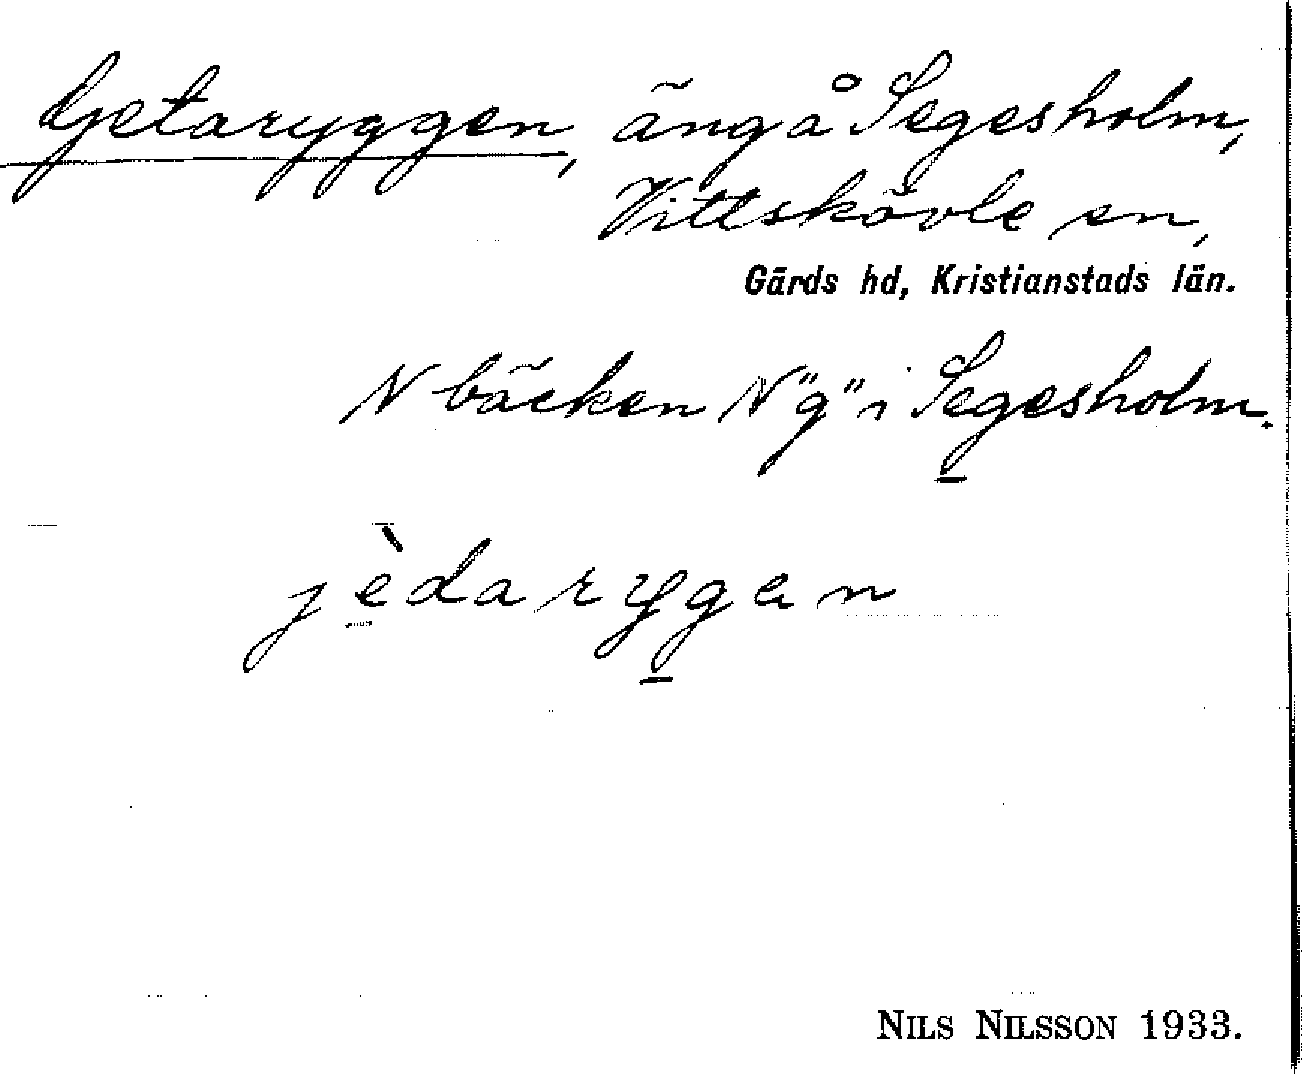 Getaryggen, äng å Segesholm,
Vittskövle sn,
Gärds hd, Kristianstads län.
N bäcken N "g" i Segesholm.
jèdarygen
NILS NILSSON 1933.